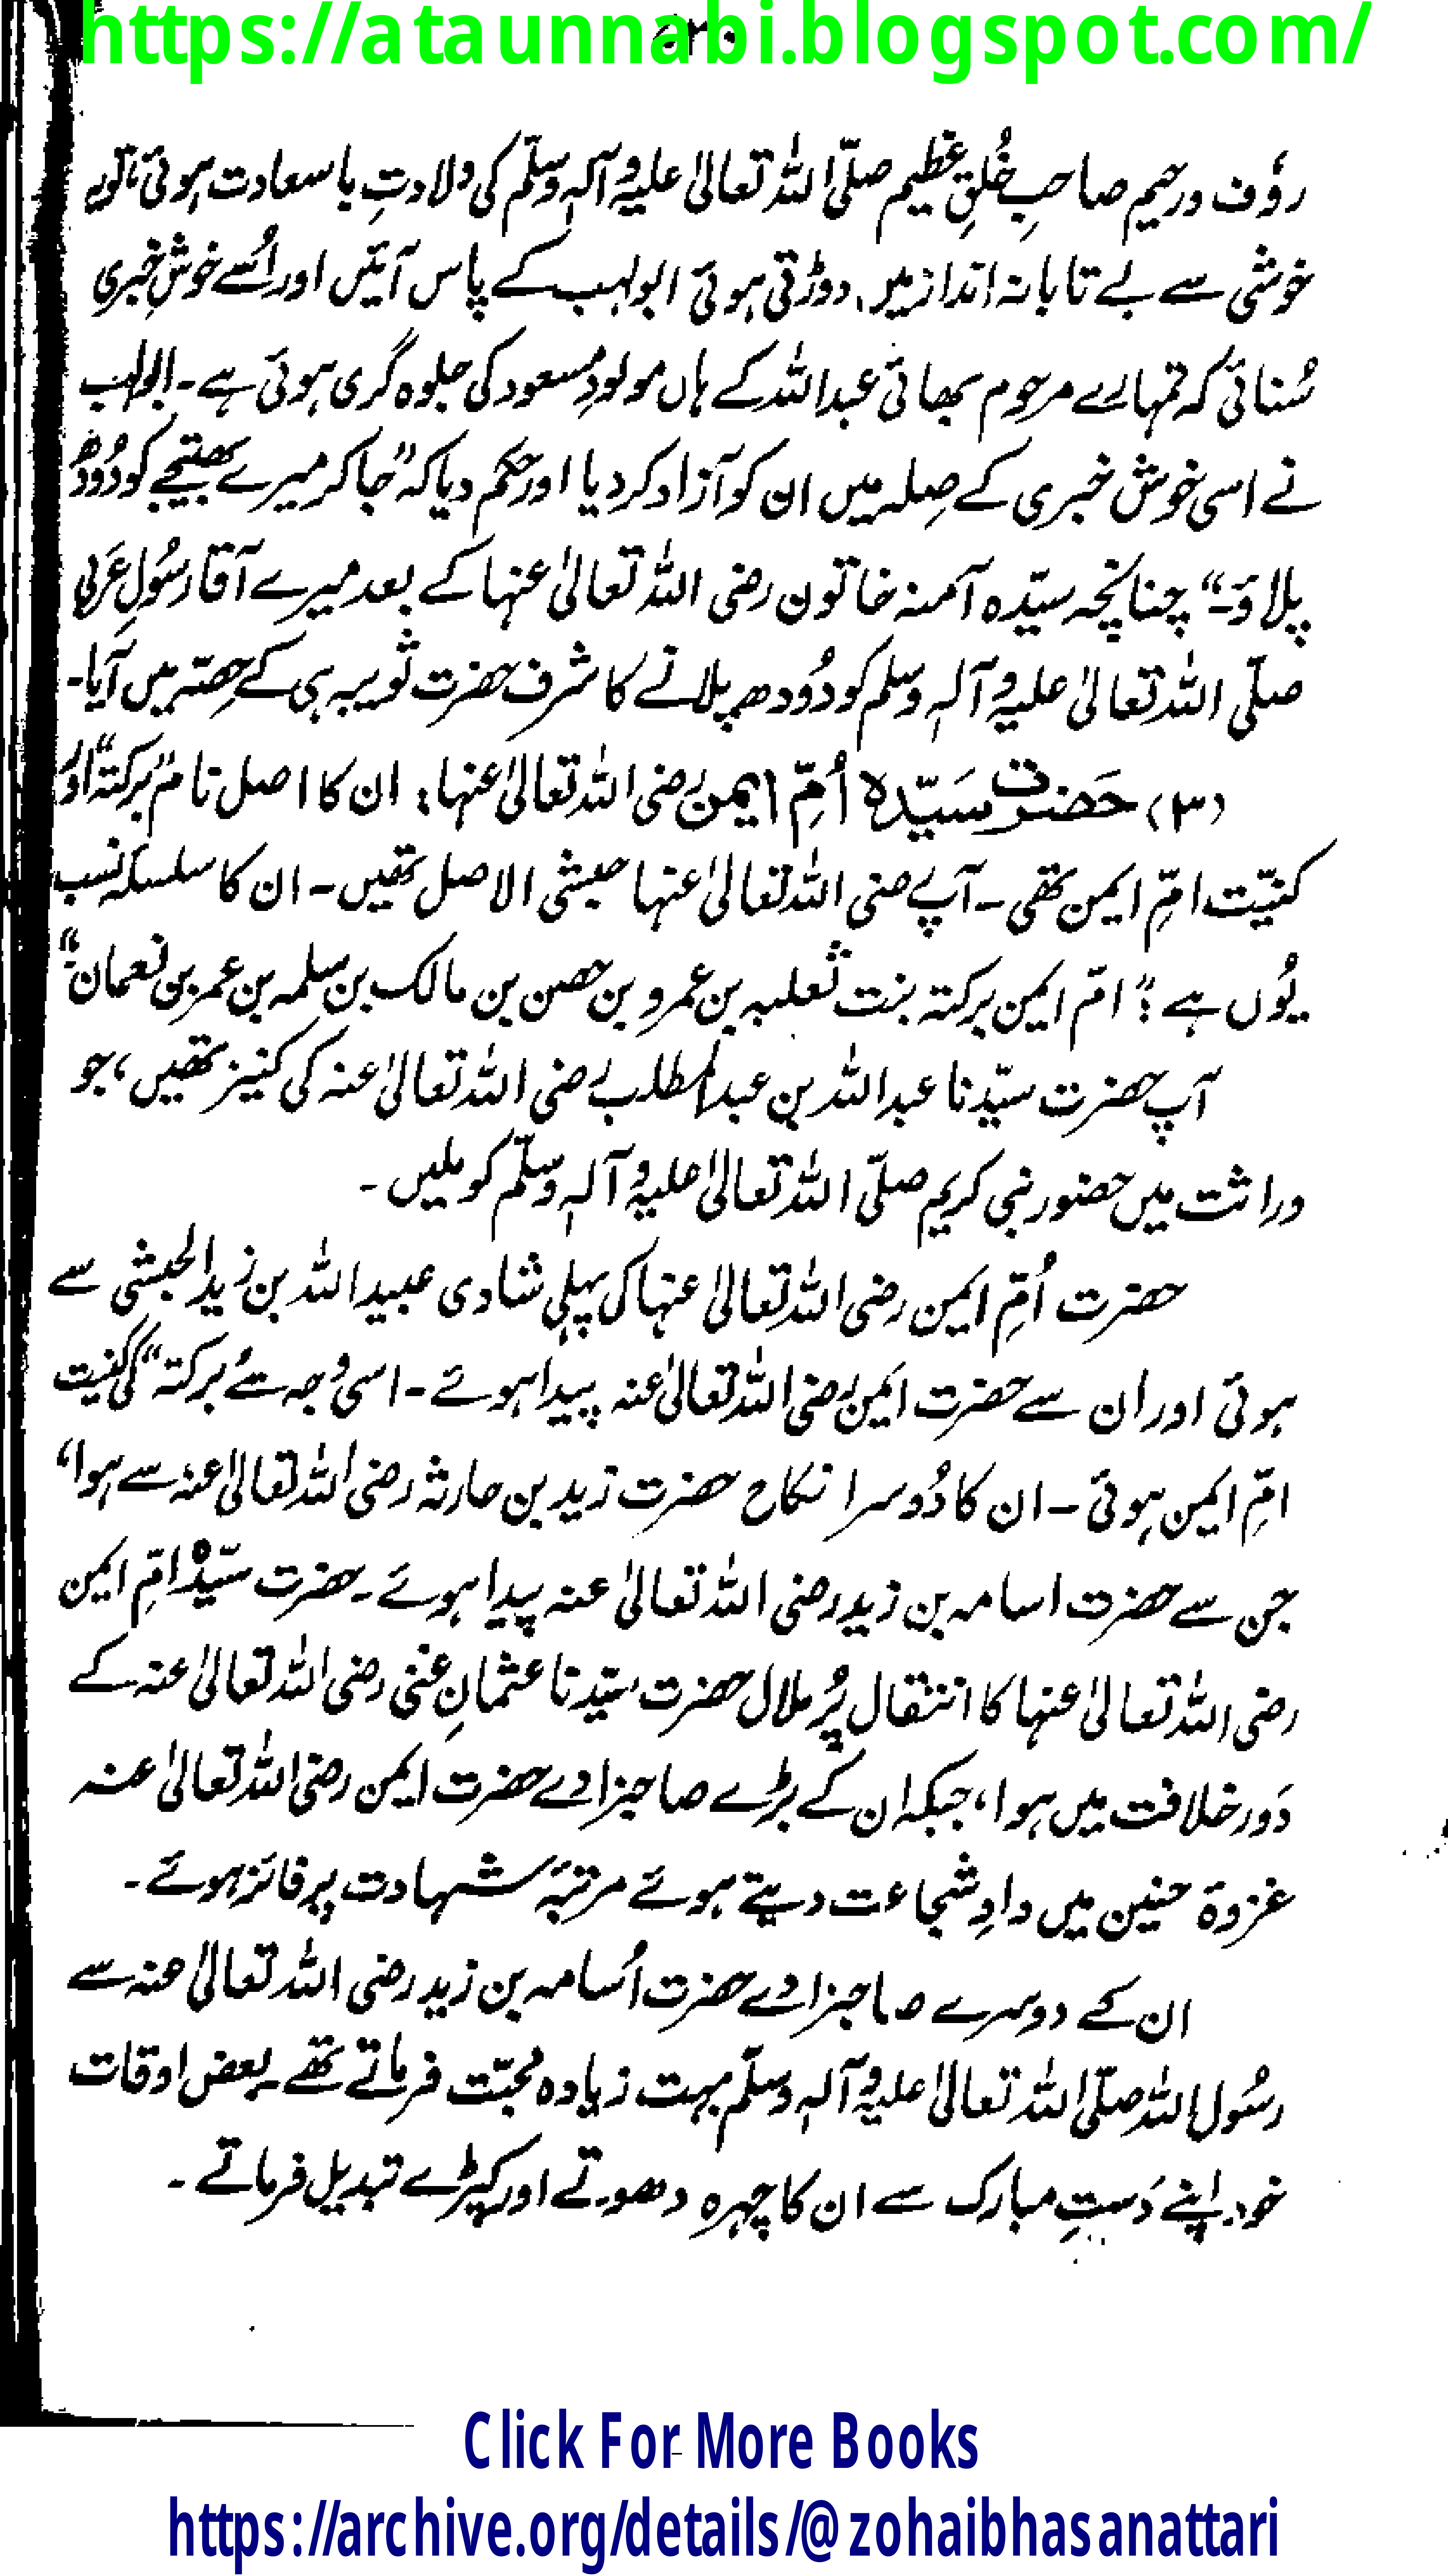 https://ataunnabi.blogspot.com/
رؤف ورحیم صاحبِ خُلقِ عظیم صلّی اللہ تعالیٰ علیہ وآلہٖ وسلّم کی ولادتِ باسعادت ہوئی تو یہ
خوشی سے بے تابانہ انداز میں دوڑتی ہوئی ابولہب کے پاس آئیں اور اُسے خوشِ خبری
سُنائی کہ تمہارے مرحوم بھائی عبداللہ کے ہاں مولودِ مسعود کی جلوہ گری ہوئی ہے۔ ابولہب
نے اسی خوش خبری کے صِلہ میں ان کو آزاد کردیا اور حکم دیا کہ "جا کر میرے بھتیجے کو دُودھ
پلاؤ۔" چنانچہ سیّدہ آمنہ خاتون رضی اللہ تعالیٰ عنہا کے بعد میرے آقا رسُولِ عَربی
صلّی اللہ تعالیٰ علیہ وآلہٖ وسلم کو دُودھ پلانے کا شرف حضرت ثویبہ ہی کے حِصّہ میں آیا۔
(۳) حَضرت سَیّدہ اُمِّ ایمن رضی اللہ تعالیٰ عنہا: ان کا اصل نام "برکتہ" اور
کنیّت امِّ ایمن تھی۔ آپ رضی اللہ تعالیٰ عنہا حبشی الاصل تھیں۔ ان کا سلسلہ نسب
یُوں ہے: "امّ ایمن برکتہ بنت ثعلبہ بن عمرو بن حصن بن مالک بن سلمہ بن عمر بن نعمان۔"
آپ حضرت سیّدنا عبداللہ بن عبدالمطلب رضی اللہ تعالیٰ عنہ کی کنیز تھیں، جو
وراثت میں حضور نبی کریم صلّی اللہ تعالیٰ علیہ وآلہٖ وسلّم کو ملیں۔
حضرت اُمِّ ایمن رضی اللہ تعالیٰ عنہا کی پہلی شادی عبیداللہ بن زید الحبشی سے
ہوئی اور ان سے حضرت ایمن رضی اللہ تعالیٰ عنہ پیدا ہوئے۔ اسی وجہ سے "برکتہ" کی کنیت
امِّ ایمن ہوئی۔ ان کا دُوسرا نکاح حضرت زید بن حارثہ رضی اللہ تعالیٰ عنہ سے ہوا،
جن سے حضرت اسامہ بن زید رضی اللہ تعالیٰ عنہ پیدا ہوئے۔ حضرت سیّدہ امِّ ایمن
رضی اللہ تعالیٰ عنہا کا انتقال پُر ملال حضرت سیّدنا عثمانِ غنی رضی اللہ تعالیٰ عنہ کے
دَور خلافت میں ہوا، جبکہ ان کے بڑے صاحبزادے حضرت ایمن رضی اللہ تعالیٰ عنہ
غزوۃ حنین میں دادِ شجاعت دیتے ہوئے مرتبۂ شہادت پر فائز ہوئے۔
ان کے دوسرے صاحبزادے حضرت اُسامہ بن زید رضی اللہ تعالیٰ عنہ سے
رسُول اللہ صلّی اللہ تعالیٰ علیہ وآلہٖ وسلّم بہت زیادہ محبّت فرماتے تھے۔ بعض اوقات
خود اپنے دَستِ مبارک سے ان کا چہرہ دھوتے اور کپڑے تبدیل فرماتے۔
Click For More Books
https://archive.org/details/@zohaibhasanattari